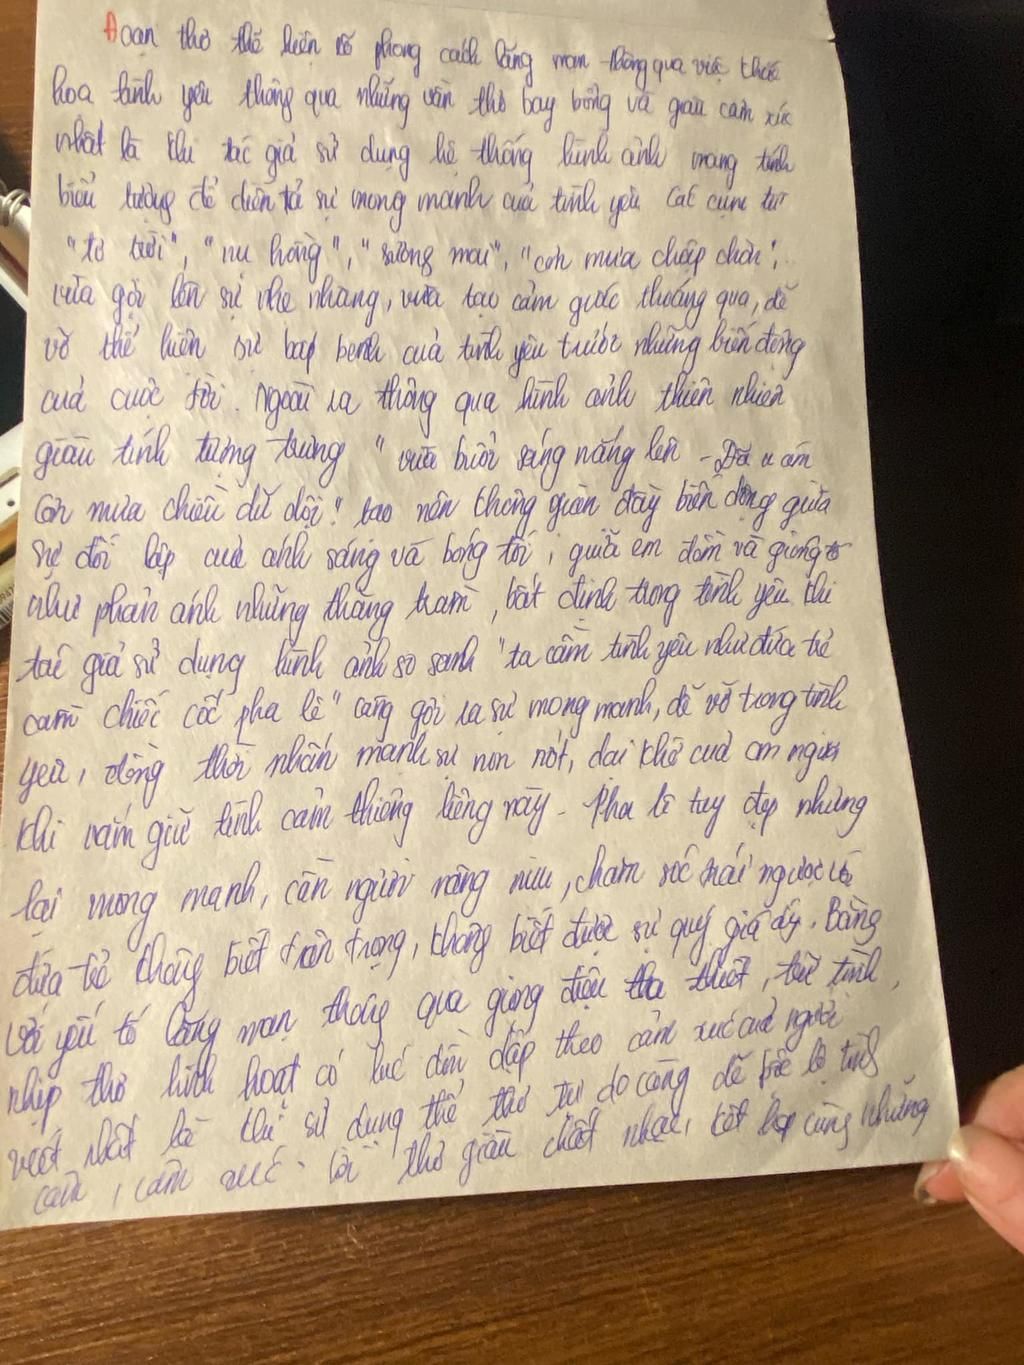 Đoạn thơ thể hiện rõ phong cách lãng mạn thông qua việc
hóa tình yêu thông qua những vần thơ bay bổng và giàu cảm xúc
nhất là khi tác giả sử dụng hệ thống hình ảnh mang tính
biểu tượng để diễn tả sự mong manh của tình yêu. Các cụm từ
"tơ trời", "nụ hồng", "sương mai", "cơn mưa chấp chới",
vừa gợi lên sự nhẹ nhàng, vừa tạo cảm giác thoáng qua, dễ
vỡ thể hiện sự bấp bênh của tình yêu trước những biến động
của cuộc đời. Ngoài ra thông qua hình ảnh thiên nhiên
giàu tính tượng trưng "vừa buổi sáng nắng lên - Đã u ám
cơn mưa chiều dữ dội" tạo nên không gian đầy biến động giữa
sự đối lập của ánh sáng và bóng tối, giữa êm đềm và giông tố
như phản ánh những thăng trầm, bất định trong tình yêu khi
tác giả sử dụng hình ảnh so sánh "ta cầm tình yêu như đứa trẻ
cầm chiếc cốc pha lê" càng gợi ra sự mong manh, dễ vỡ trong tình
yêu, đồng thời nhấn mạnh sự non nớt, dại khờ của con người
khi nắm giữ tình cảm thiêng liêng này. Pha lê tuy đẹp nhưng
lại mong manh, cần người nâng niu, chăm sóc trái ngược với
đứa trẻ không biết trân trọng, không biết được sự quý giá ấy. Bằng
với yếu tố lãng mạn thông qua giọng điệu tha thiết, trữ tình,
nhịp thơ linh hoạt có lúc dồn dập theo cảm xúc của người
viết nhất là khi sử dụng thể thơ tự do càng dễ bộc lộ tình
cảm, cảm xúc. Lời thơ giàu chất nhạc, kết hợp cùng những